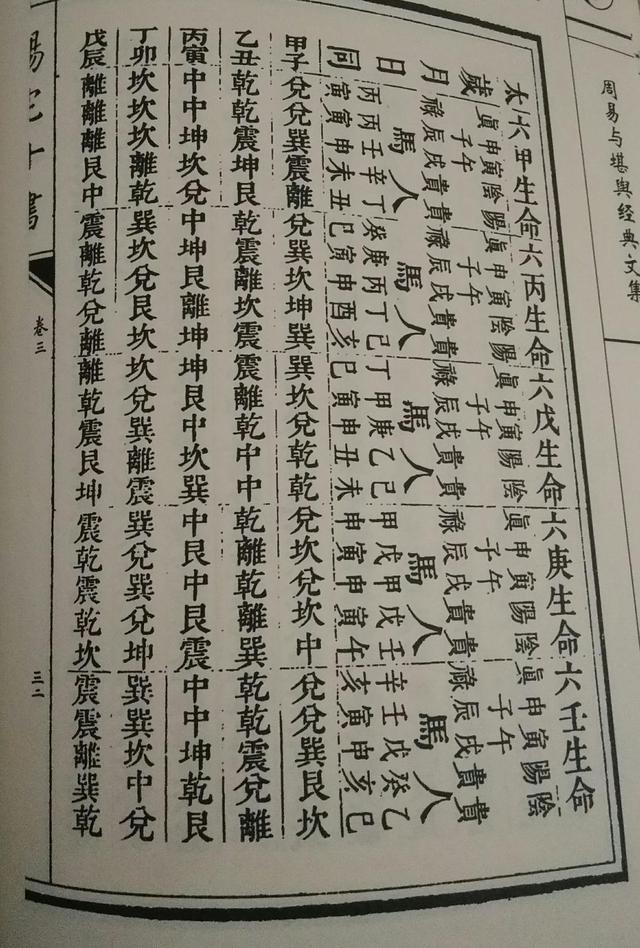 周易与堪舆经典文集
太六甲生命六丙生命六戊生命六庚生命六壬生命
歲眞申寅陰陽眞申寅陰陽眞申寅陽陰眞申寅陽陰眞申寅陽陰
子午子午子午子午子午
月祿辰戌貴貴祿辰戌貴貴祿辰戌貴貴祿辰戌貴貴祿辰戌貴貴
馬人馬人馬人馬人馬人
日丙丙壬辛丁癸庚丙丁己丁甲庚乙己甲戊甲戊壬辛壬戊癸乙
同寅寅申未丑巳寅申酉亥巳寅申丑未申寅申寅午亥寅申亥巳
甲子兌兌巽震離兌巽坎坤巽巽坎兌乾乾兌坎兌坎中兌兌巽艮坎
乙丑乾乾震坤艮乾震離坎震震離乾中中乾離乾離巽乾乾震兌離
丙寅中中坤坎兌中坤艮離坤坤艮中坎巽中艮中艮震中中坤乾艮
丁卯坎坎坎離乾巽坎兌艮坎坎兌巽離震巽兌巽兌坤巽巽坎中兌
戊辰離離離艮中震離乾兌離離乾震艮坤震乾震乾坎震震離巽乾
陽宅十書
卷三
三二